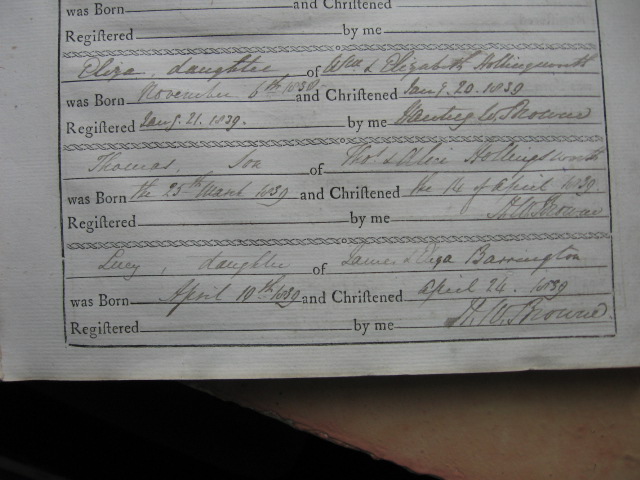 was Born and Chriſtened
Regiſtered by me
Eliza, daughter of Wm & Elizabeth Hollingworth
was Born November 6th 1838 and Chriſtened Jany. 20. 1839
Regiſtered Jany. 21. 1839. by me W. Browne
Thomas, Son of Thos & Alice Hollingsworth
was Born the 25th March 1839 and Chriſtened the 14 of April 1839
Regiſtered by me H. W. Browne
Lucy, daughter of James & Eliza Barrington
was Born April 10th 1839 and Chriſtened April 24. 1839
Regiſtered by me H. W. Browne